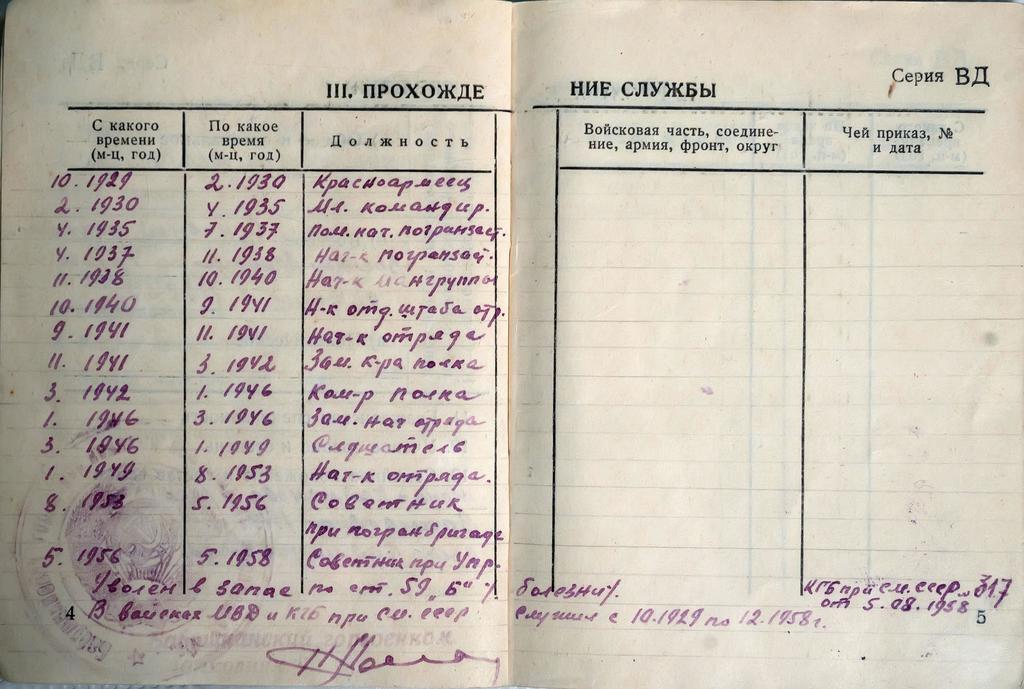 Серия ВД
III. ПРОХОЖДЕ НИЕ СЛУЖБЫ
С какого времени (м-ц, год) По какое время (м-ц, год) Должность Войсковая часть, соединение, армия, фронт, округ Чей приказ, № и дата
10. 1929 2. 1930 Красноармеец
2. 1930 4. 1935 Мл. командир.
4. 1935 7. 1937 Пом. нач. погранзаст.
4. 1937 11. 1938 Нач-к погранзаст.
11. 1938 10. 1940 Нач-к Мангруппы
10. 1940 9. 1941 Н-к отд. штаба отр.
9. 1941 11. 1941 Нач-к отряда
11. 1941 3. 1942 Зам. к-ра полка
3. 1942 1. 1946 Ком-р полка
1. 1946 3. 1946 Зам. нач отряда
3. 1946 1. 1949 Слушатель
1. 1949 8. 1953 Нач-к отряда.
8. 1953 5. 1956 Советник
при погранбригаде
5. 1956 5. 1958 Советник при Упр.
Уволен в запас по ст. 59 „Б" /. болезни/. КГБ при См. СССР №317
от 5.08.1958
В войсках МВД и КГБ при См. СССР служил с 10.1929 по 12.1958 г.
4 5